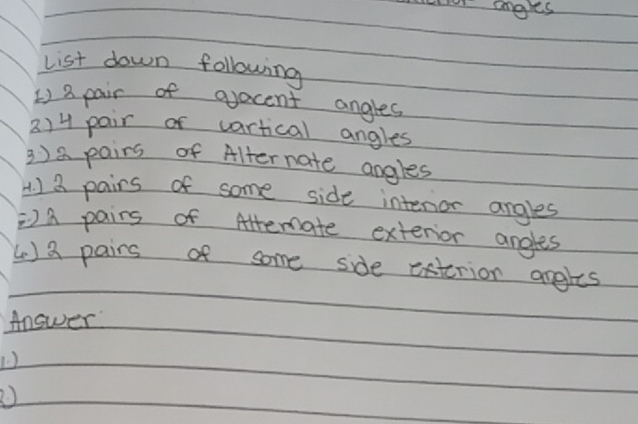 angles
List down following
1) 2 pair of ajacent angles
2) 4 pair of vartical angles
3) 2 pairs of Alternate angles
4.) 2 pairs of same side interior angles
5) 2 pairs of Alternate exterior angles
6) 2 pairs of same side exterior angles
Answer:
1.)
2.)